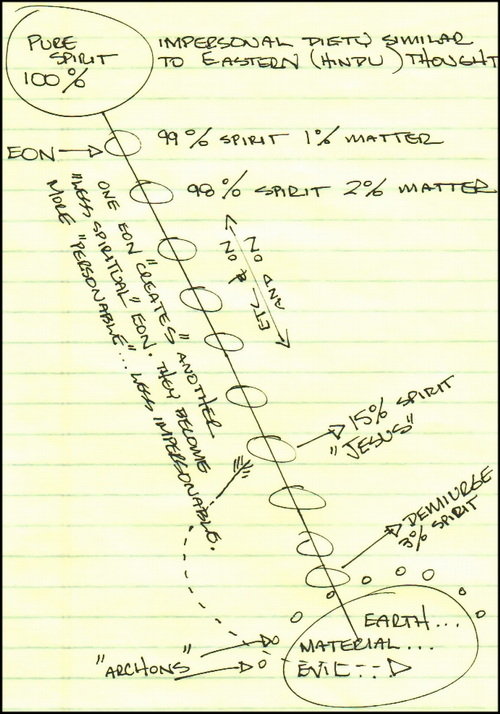 PURE
SPIRIT
100%
IMPERSONAL DIETY SIMILAR
TO EASTERN (HINDU) THOUGHT
EON
99% SPIRIT 1% MATTER
98% SPIRIT 2% MATTER
ONE EON "CREATES" ANOTHER
"LESS SPIRITUAL" EON. THEY BECOME
MORE "PERSONABLE"... LESS IMPERSONABLE.
ETC AND
ON & ON
15% SPIRIT
"JESUS"
DEMIURGE
3% SPIRIT
EARTH...
MATERIAL...
EVIL
"ARCHONS"